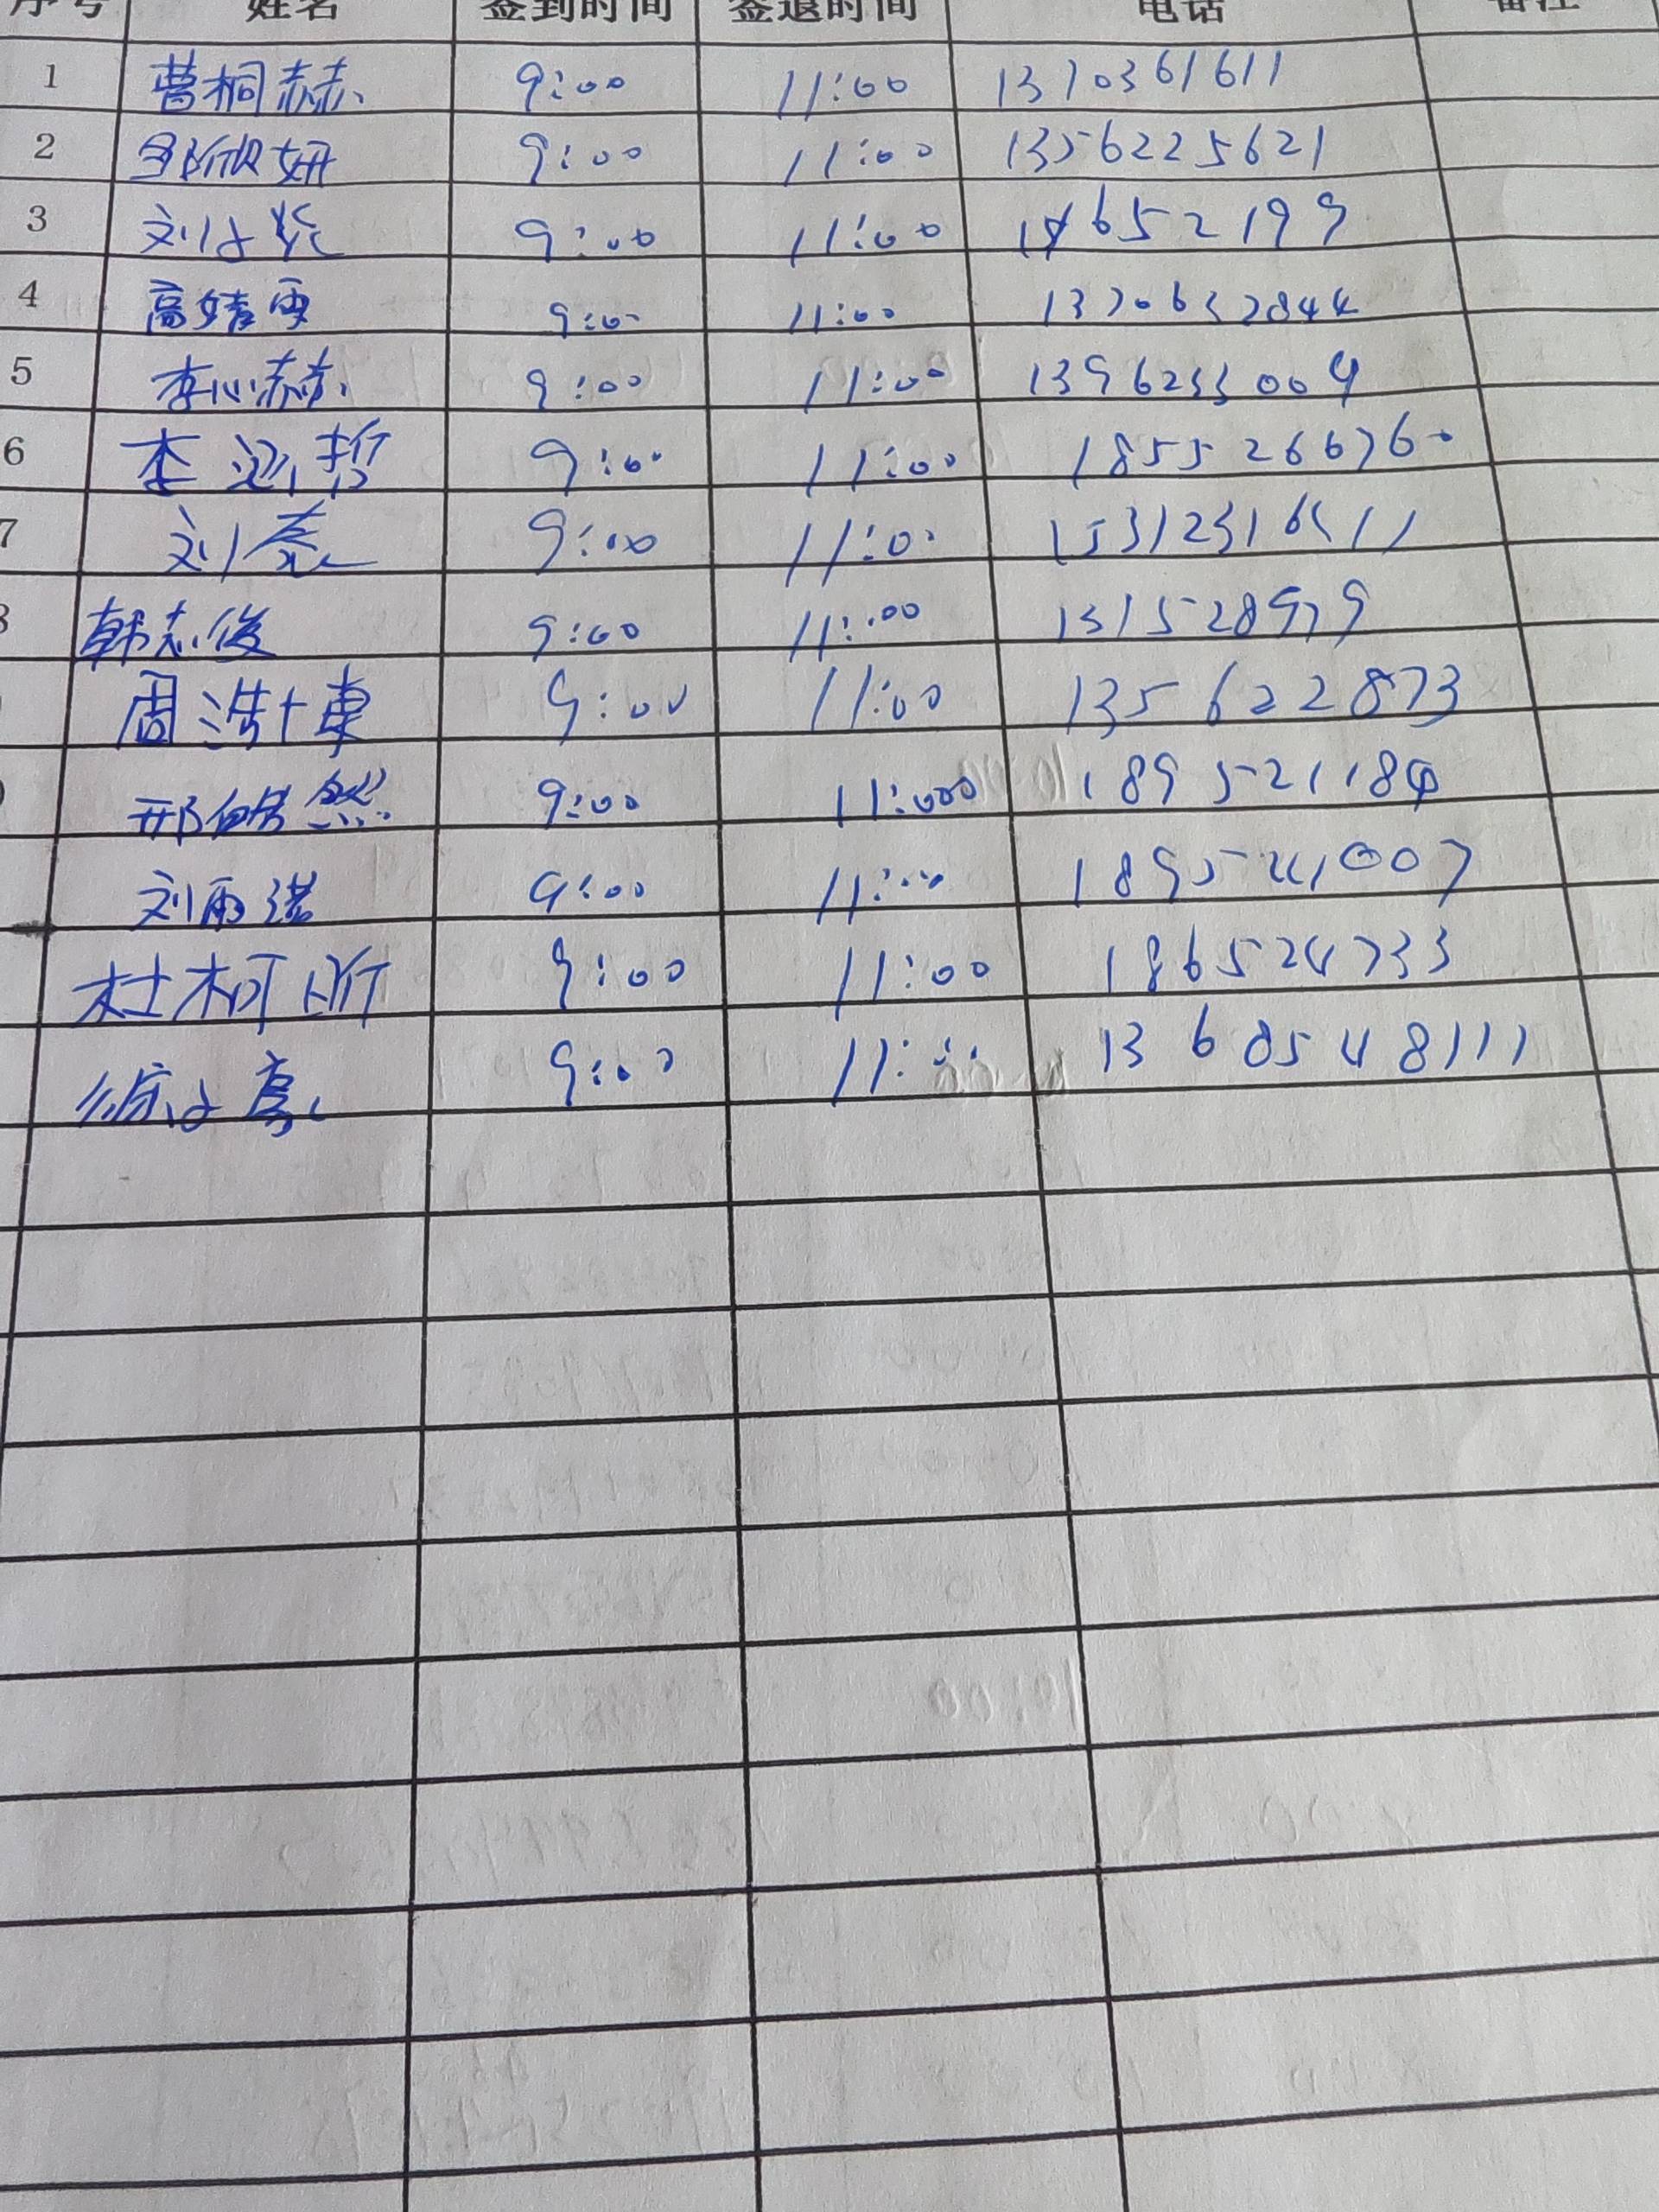 序号 姓名 签到时间 签退时间 电话 备注
1 曹桐赫 9:00 11:00 1370361611
2 邹欣妍 9:00 11:00 1356225621
3 刘 9:00 11:00 652199
4 高婧雯 9:00 11:00 1370632844
5 李心赫 9:00 11:00 1396233004
6 李 哲 9:00 11:00 1855266760
7 刘 9:00 11:00 15312316511
8 韩志俊 9:00 11:00 131528979
周浩东 9:00 11:00 135622873
邢皓然 9:00 11:000 189521184
刘雨诺 9:00 11:00 1895241007
杜柯昕 9:00 11:00 186524733
9:00 11:00 1368548111